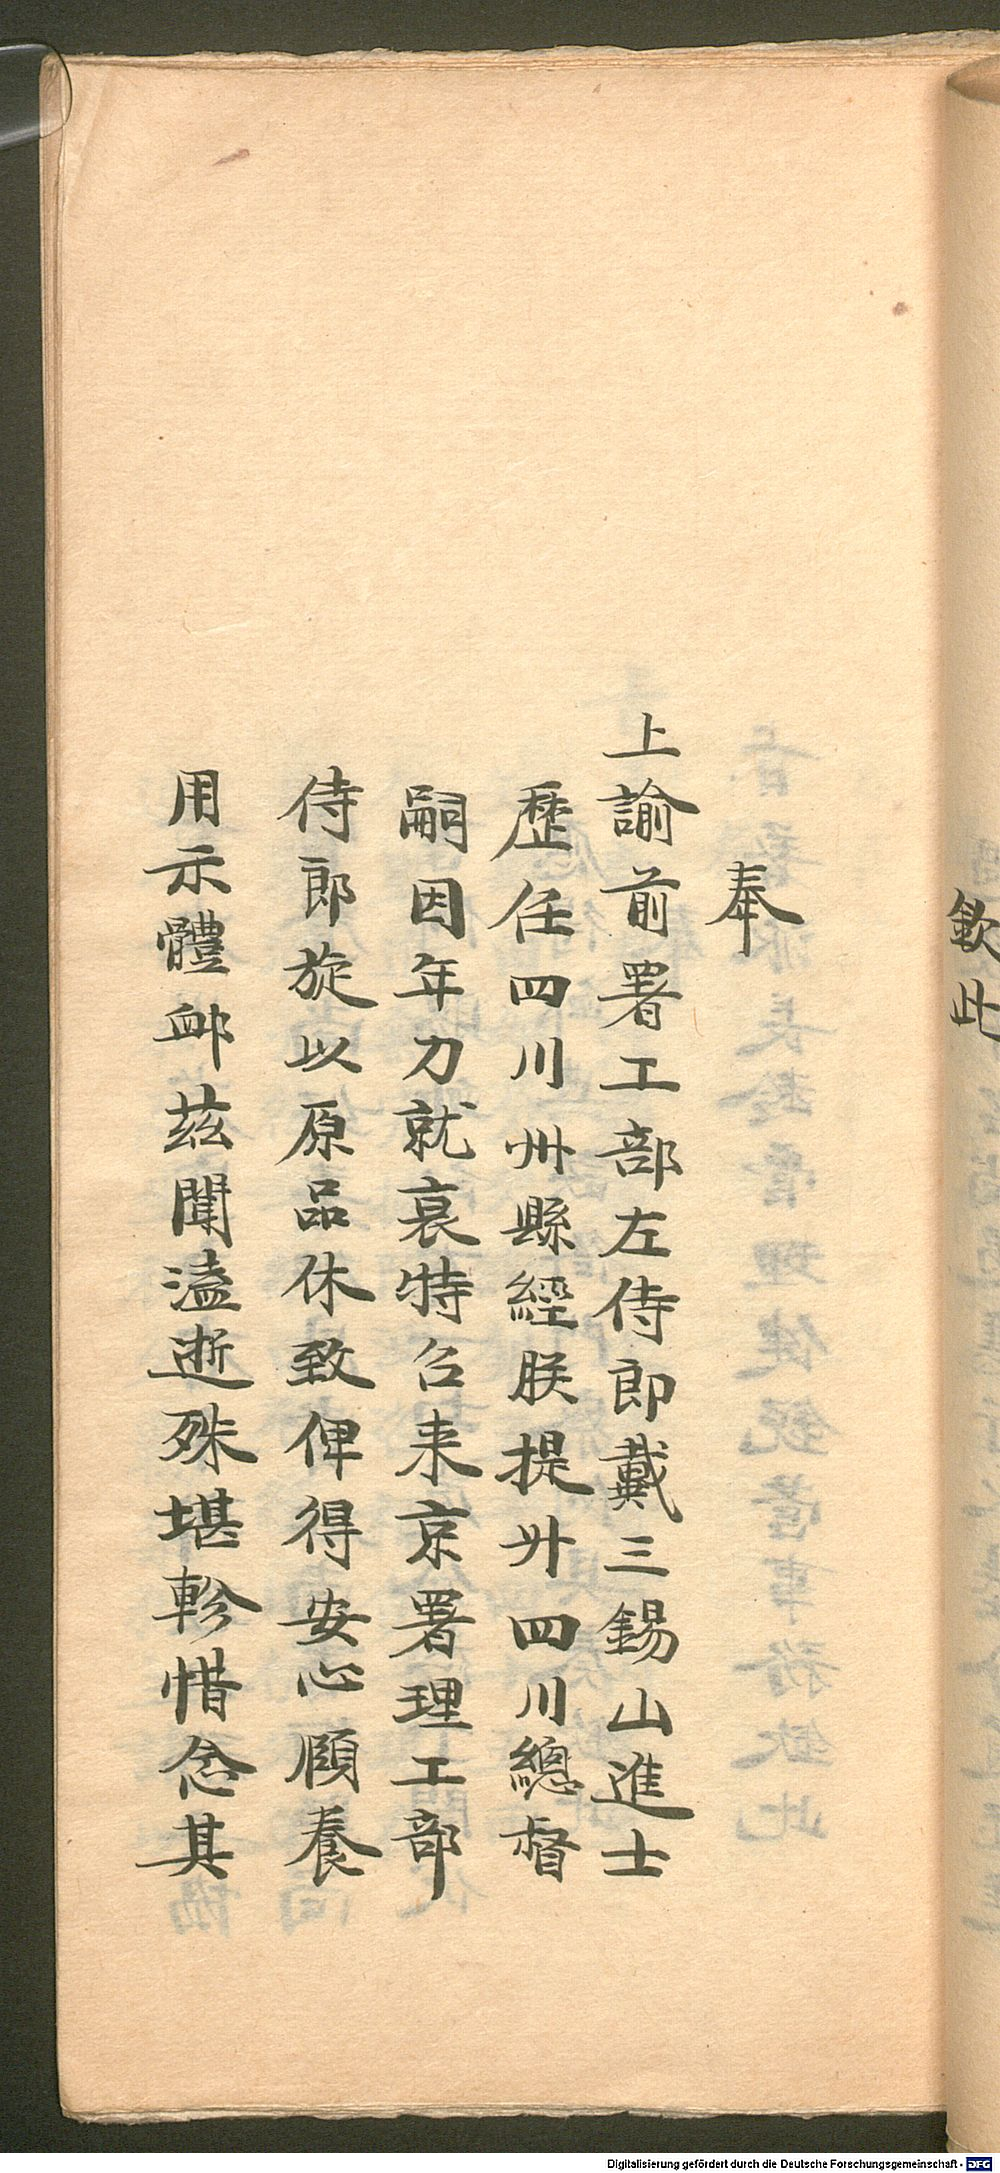 欽此
奉
上諭前署工部左侍郎戴三錫山進士
歷任四川州縣經朕提升四川總督
嗣因年力就衰特召来京署理工部
侍郎旋以原品休致俾得安心頤養
用示體卹茲聞溘逝殊堪軫惜念其
Digitalisierung gefördert durch die Deutsche Forschungsgemeinschaft - DFG